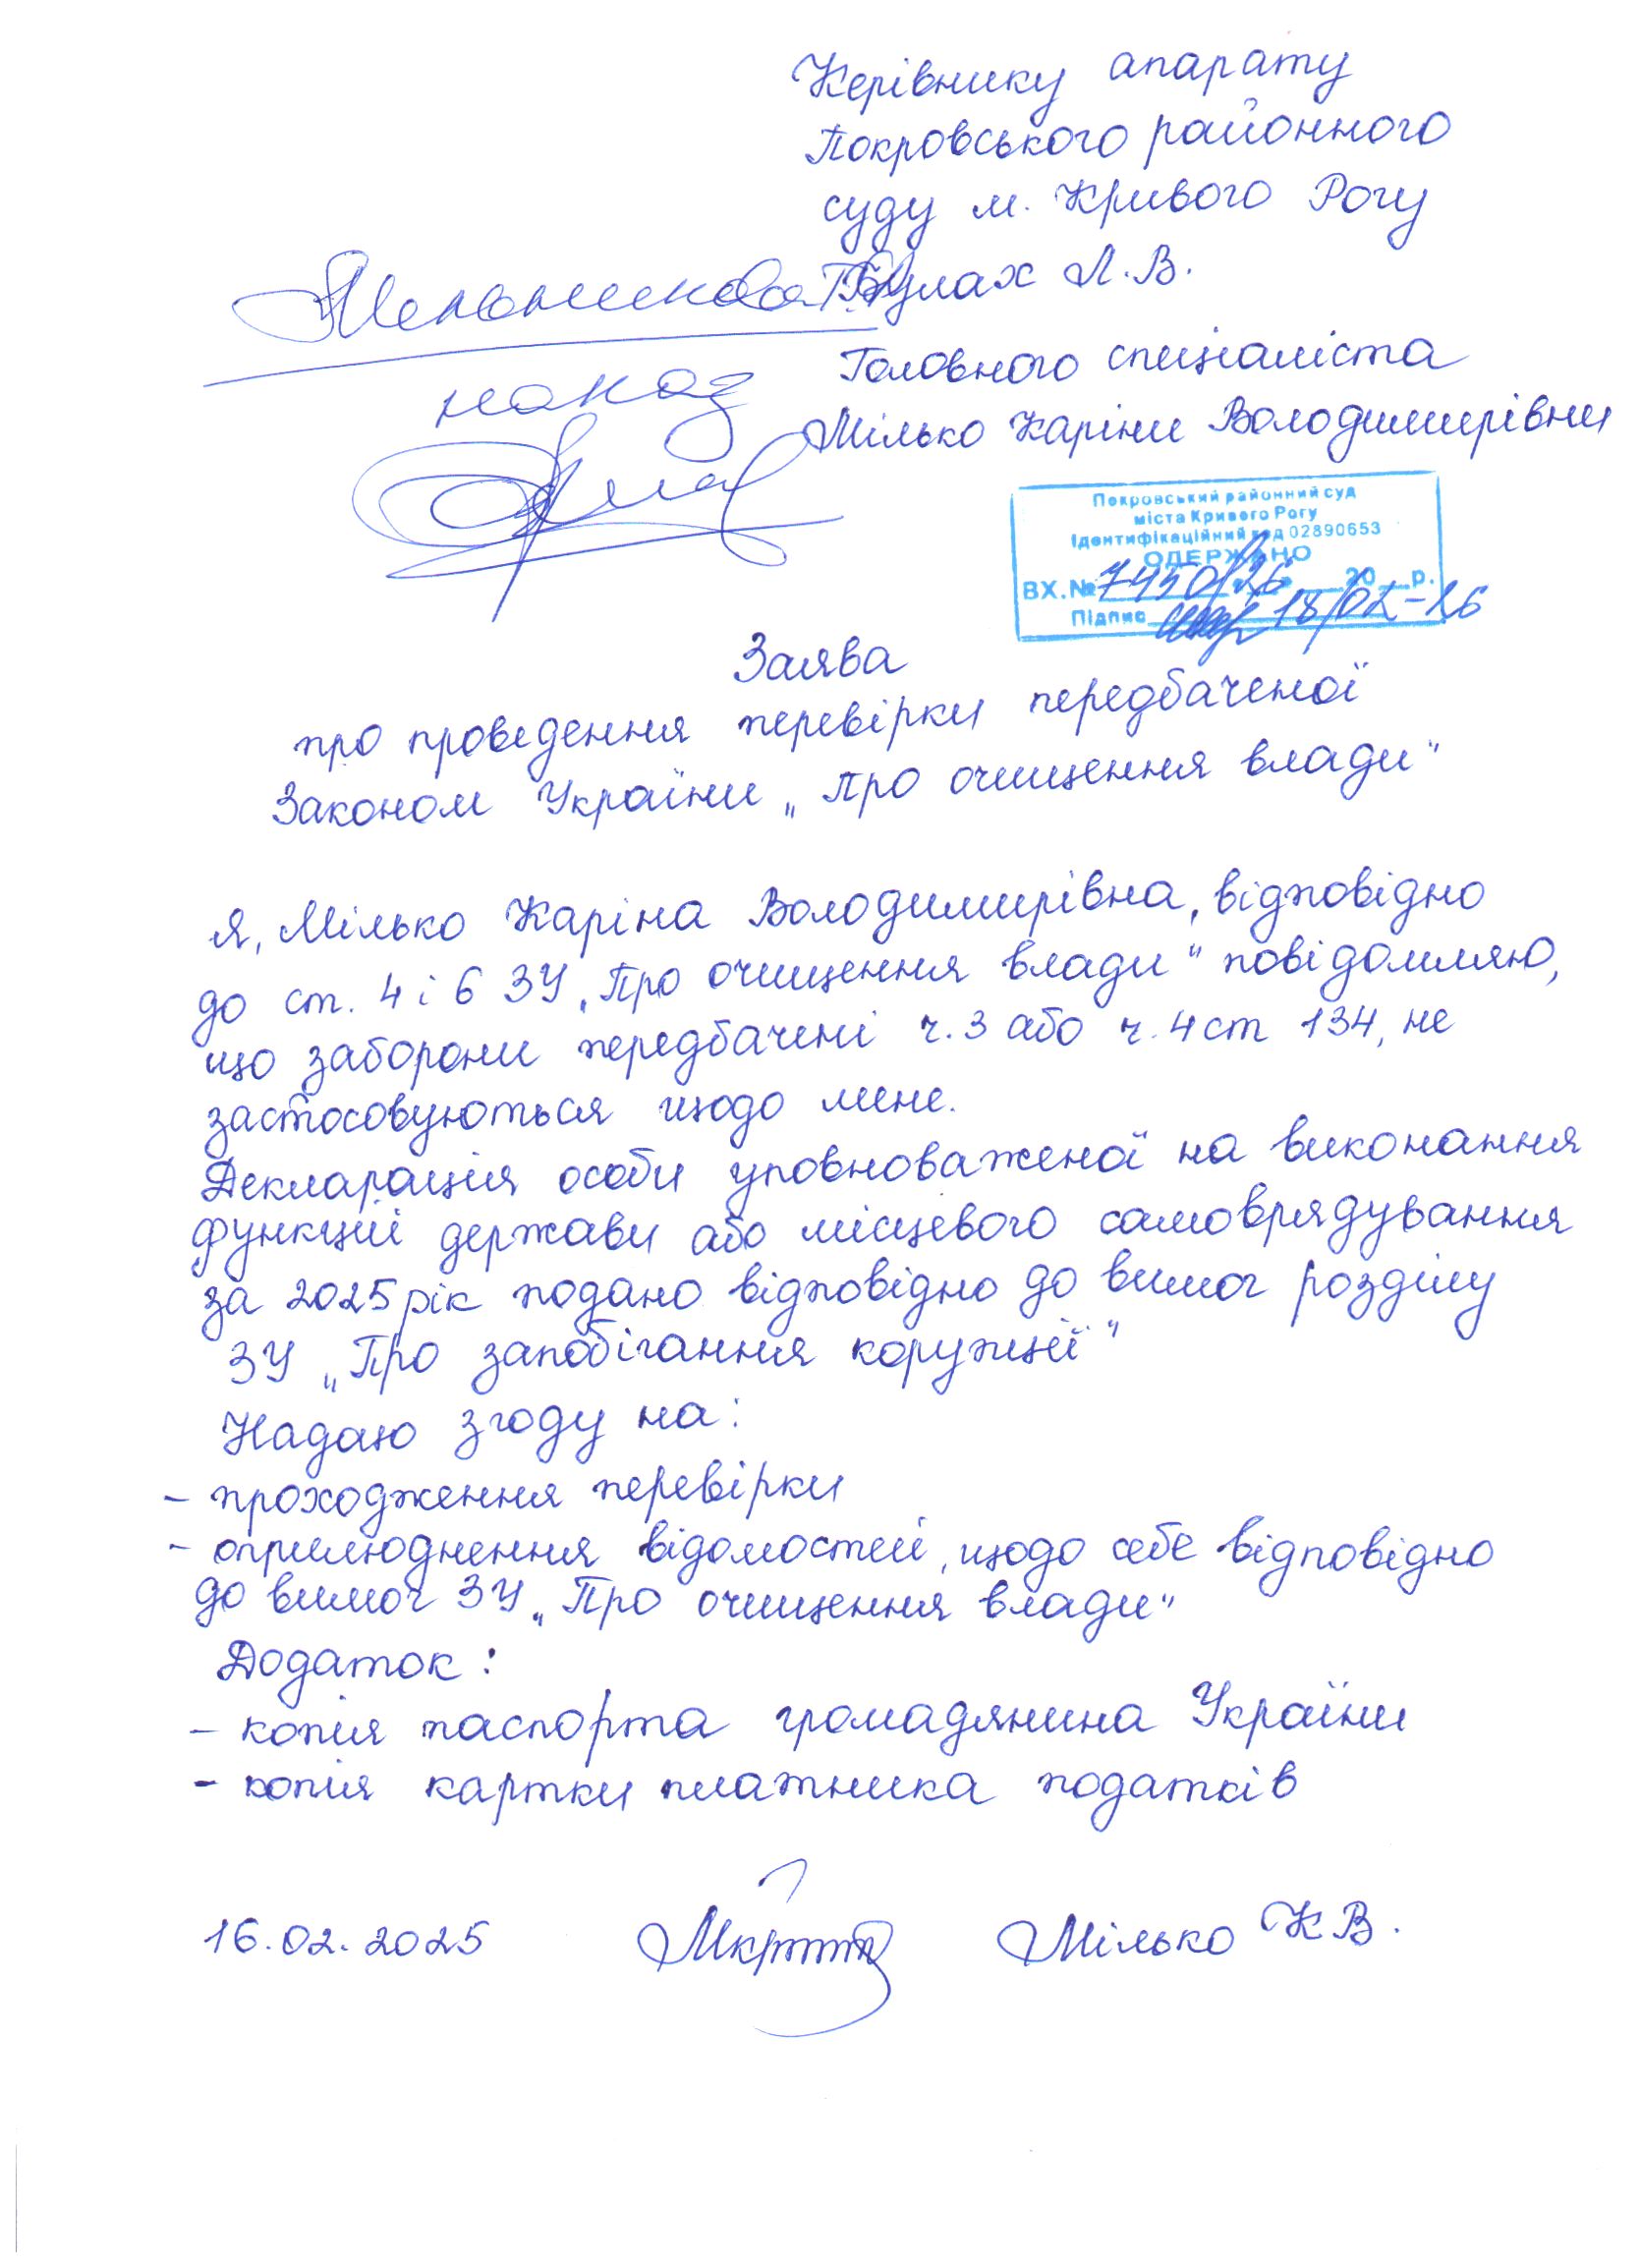 Керівнику апарату
Покровського районного
суду м. Кривого Рогу
Булах Л.В.
Мельникова Т.В.
наказ
Головного спеціаліста
Мілько Каріни Володимирівни
Покровський районний суд
міста Кривого Рогу
Ідентифікаційний код 02890653
ОДЕРЖАНО
ВХ.№ 7450/26 20 р.
Підпис 18/02-26
Заява
про проведення перевірки передбаченої
Законом України „Про очищення влади"
Я, Мілько Каріна Володимирівна, відповідно
до ст. 4 і 6 ЗУ „Про очищення влади" повідомляю,
що заборони передбачені ч.3 або ч.4 ст 134, не
застосовуються щодо мене.
Декларація особи уповноваженої на виконання
функцій держави або місцевого самоврядування
за 2025 рік подано відповідно до вимог розділу
ЗУ „Про запобігання корупції"
Надаю згоду на:
- проходження перевірки
- оприлюднення відомостей, щодо себе відповідно
до вимог ЗУ „Про очищення влади"
Додаток:
- копія паспорта громадянина України
- копія картки платника податків
16.02.2025 Мілько К В.